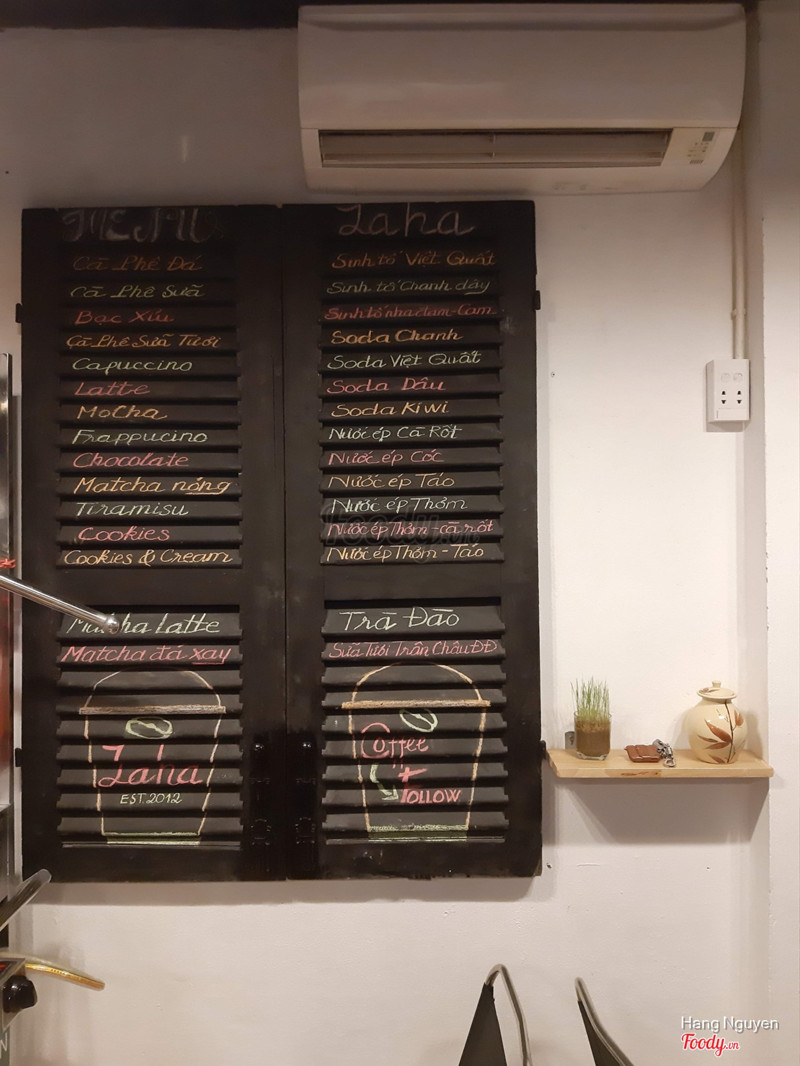 MENU
Cà Phê Đá
Cà Phê Sữa
Bạc Xíu
Cà Phê Sữa Tươi
Capuccino
Latte
MoCha
Frappucino
Chocolate
Matcha nóng
Tiramisu
Cookies
Cookies & Cream
Matcha Latte
Matcha đá xay
Zaha
EST. 2012
Zaha
Sinh tố Việt Quất
Sinh tố Chanh dây
Sinh tố nha đam - Cam
Soda Chanh
Soda Việt Quất
Soda Dâu
Soda Kiwi
Nước ép Cà Rốt
Nước ép Cóc
Nước ép Táo
Nước ép Thơm
Nước ép Thơm - cà rốt
Nước ép Thơm - Táo
Trà Đào
Sữa tươi Trân Châu ĐĐ
Coffee
+
Follow
Foody.vn
Hang Nguyen
Foody.vn